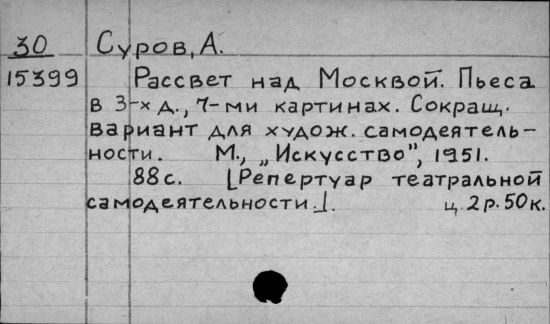 30 Суров, А.
15399 Рассвет над Москвой. Пьеса
в 3-х д., 7-ми картинах. Сокращ.
вариант для худож. самодеятель-
ности. М., „Искусство", 1951.
88с. [Репертуар театральной
самодеятельности.]. ц. 2р. 50к.